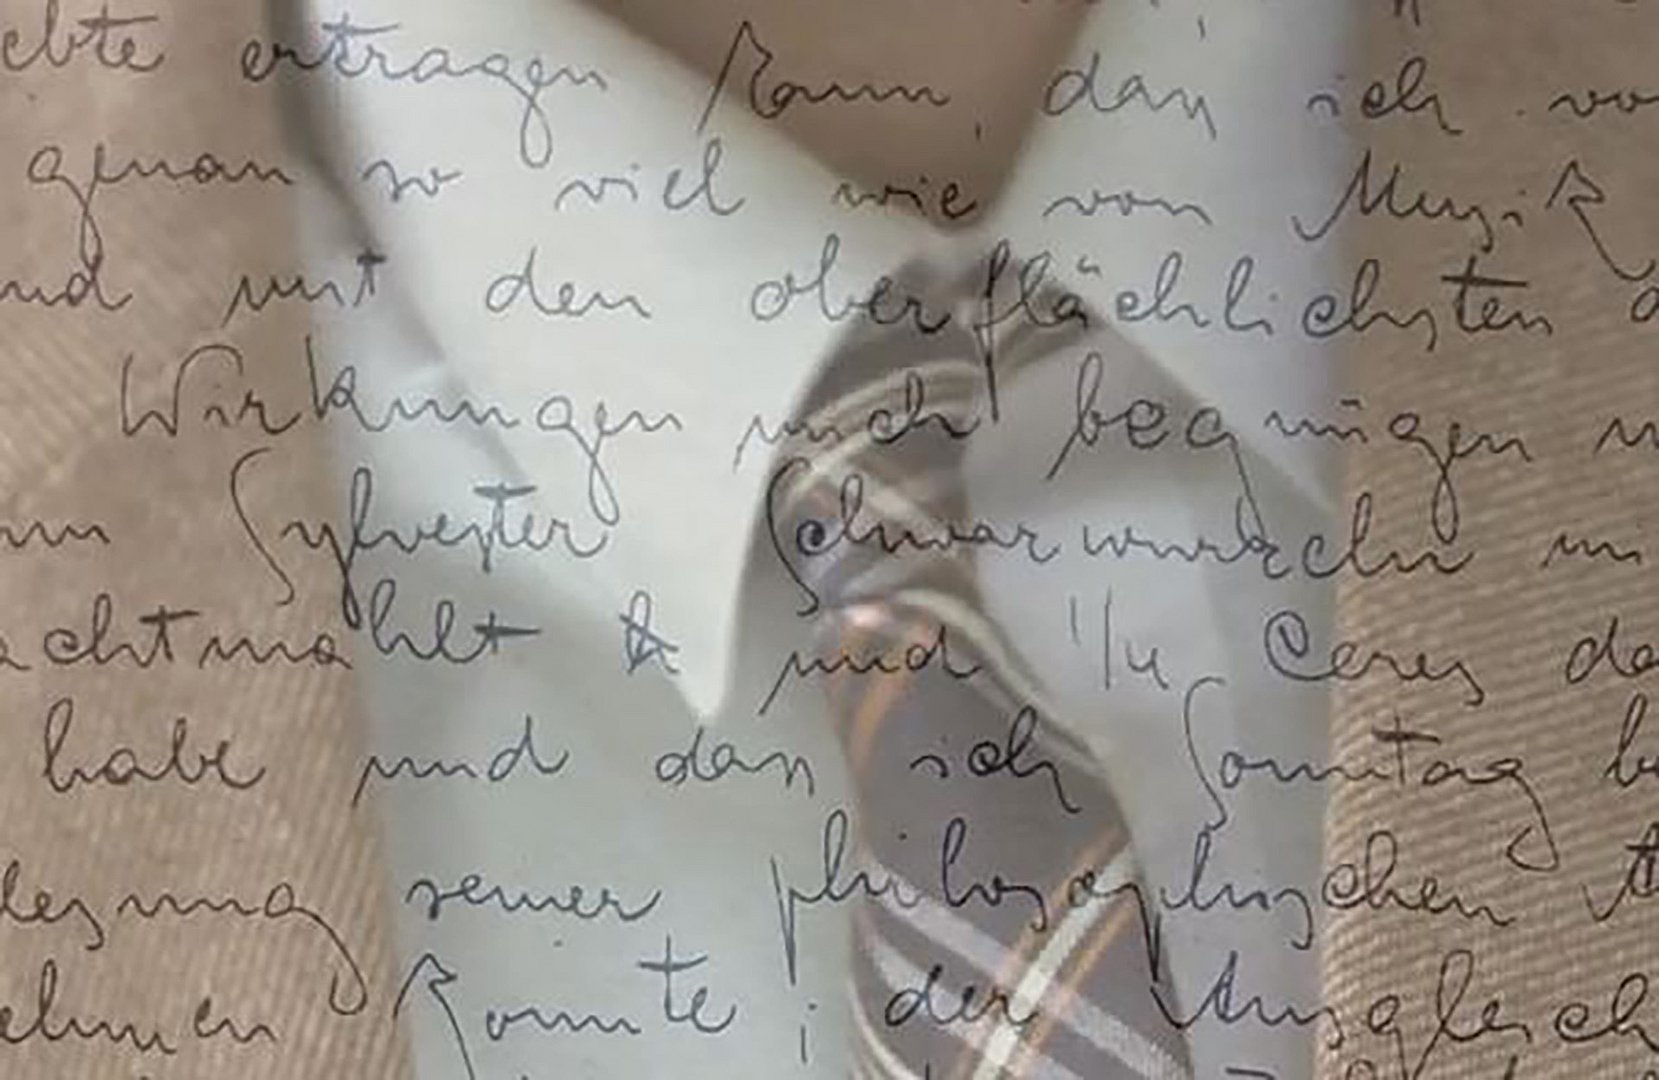 ebte ertragen kann, daß ich vo
genau so viel wie von Musik
nd mit den oberflächlichsten
Wirkungen mich begnügen
nn Sylvester Schwarzwurzeln
achtmahlt und 1/4 Ceres da
habe und daß ich Sonntag b
lesung seiner philosophischen
ehmen konnte; der Ausgleich